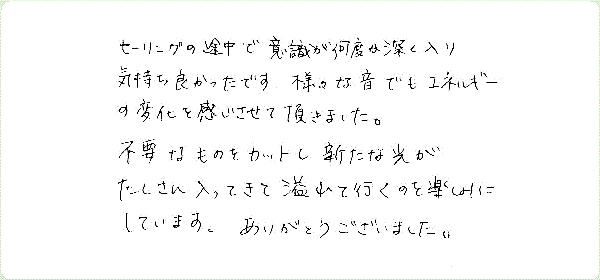 セーリングの途中で意識が何度か深く入り
気持ち良かったです。様々な音でもエネルギー
の変化を感じさせて頂きました。
不要なものをカットし新たな光が
たくさん入ってきて溢れて行くのを楽しみに
しています。ありがとうございました。